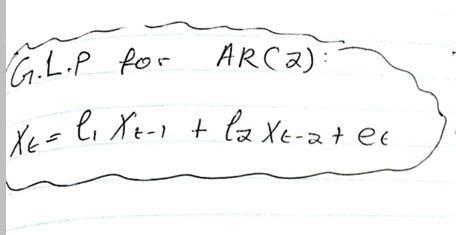 G.L.P for AR(2):
Xt = l1 Xt-1 + l2 Xt-2 + et